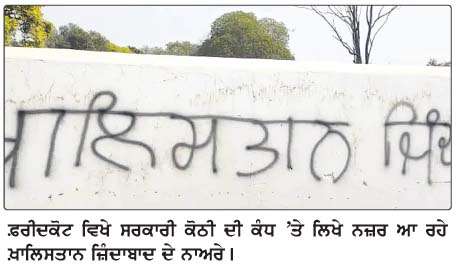 ਖਾਲਿਸਤਾਨ
ਫ਼ਰੀਦਕੋਟ ਵਿਖੇ ਸਰਕਾਰੀ ਕੋਠੀ ਦੀ ਕੰਧ ’ਤੇ ਲਿਖੇ ਨਜ਼ਰ ਆ ਰਹੇ
ਖ਼ਾਲਿਸਤਾਨ ਜ਼ਿੰਦਾਬਾਦ ਦੇ ਨਾਅਰੇ।